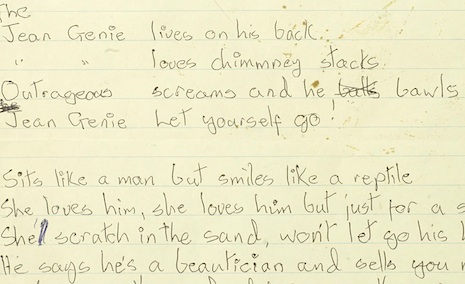 The
Jean Genie lives on his back
" " loves chimmney stacks
Outrageous screams and he balls bawls
Jean Genie Let yourself go!
Sits like a man but smiles like a reptile
She loves him, she loves him but just for a s
She'll scratch in the sand, won't let go his h
He says he's a beautician and sells you n